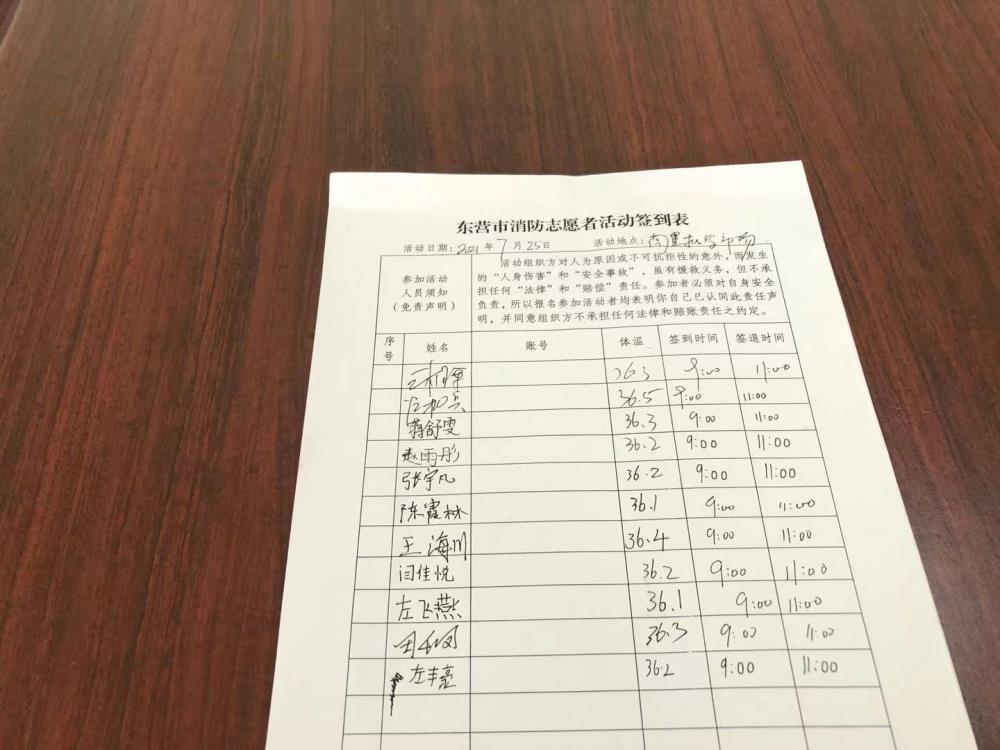 东营市消防志愿者活动签到表
活动日期：2021年7月25日 活动地点：批发市场
参加活动人员须知（免责声明）
活动组织方对人为原因或不可抗拒性的意外，而发生
的“人身伤害”和“安全事故”，虽有援救义务，但不承
担任何“法律”和“赔偿”责任。参加者必须对自身安全
负责，所以报名参加活动者均表明你自己已认同此责任声
明，并同意组织方不承担任何法律和赔账责任之约定。
序号 姓名 账号 体温 签到时间 签退时间
36.3 9:00 11:00
36.5 9:00 11:00
蒋舒雯 36.3 9:00 11:00
赵雨彤 36.2 9:00 11:00
张宇凡 36.2 9:00 11:00
陈霞林 36.1 9:00 11:00
王海川 36.4 9:00 11:00
闫佳悦 36.2 9:00 11:00
左飞燕 36.1 9:00 11:00
36.3 9:00 11:00
左丰亮 36.2 9:00 11:00